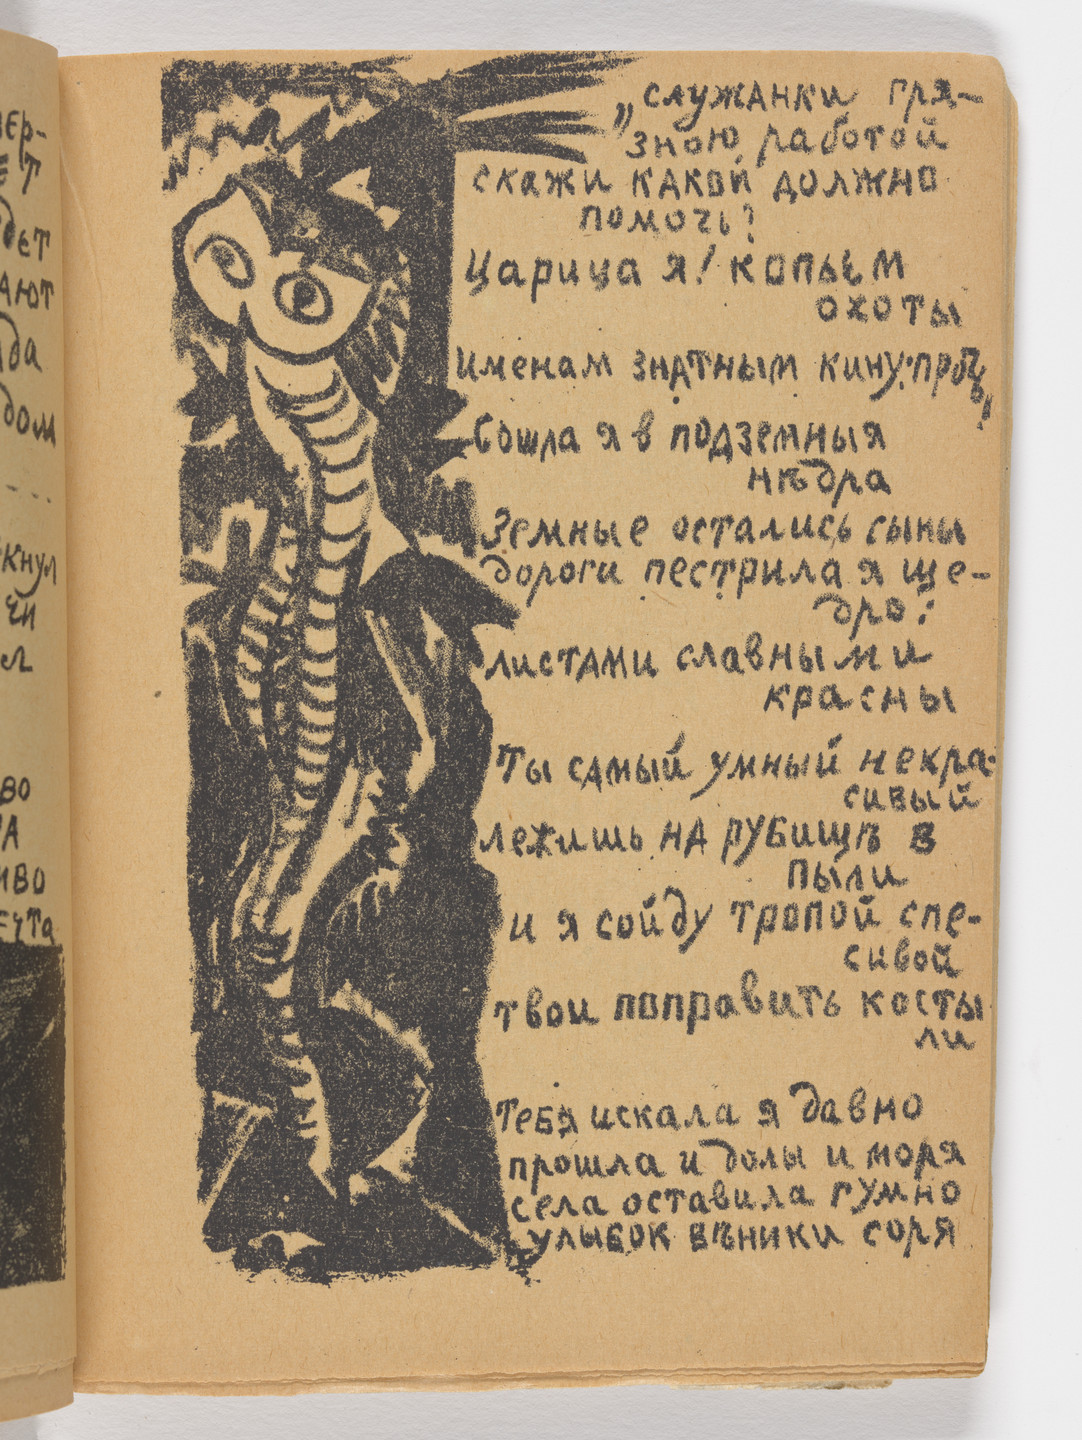 вер-
т
дет
ают
да
дом
кнул
чи
л
во
ра
иво
ечта
„служанки гря-
зною работой
скажи какой должно
помочь?
Царица я! копьем
охоты
именам знатным кину:
Сошла я в подземныя
нѣдра
Земные остались сыны
дороги пестрила я ще-
дро:
листами славными
красны
Ты самый умный некра-
сивый
лежишь на рубищѣ в
пыли
и я сойду тропой спе-
сивой
твои поправить косты-
ли
Тебя искала я давно
прошла и долы и моря
села оставила гумно
улыбок вѣники соря